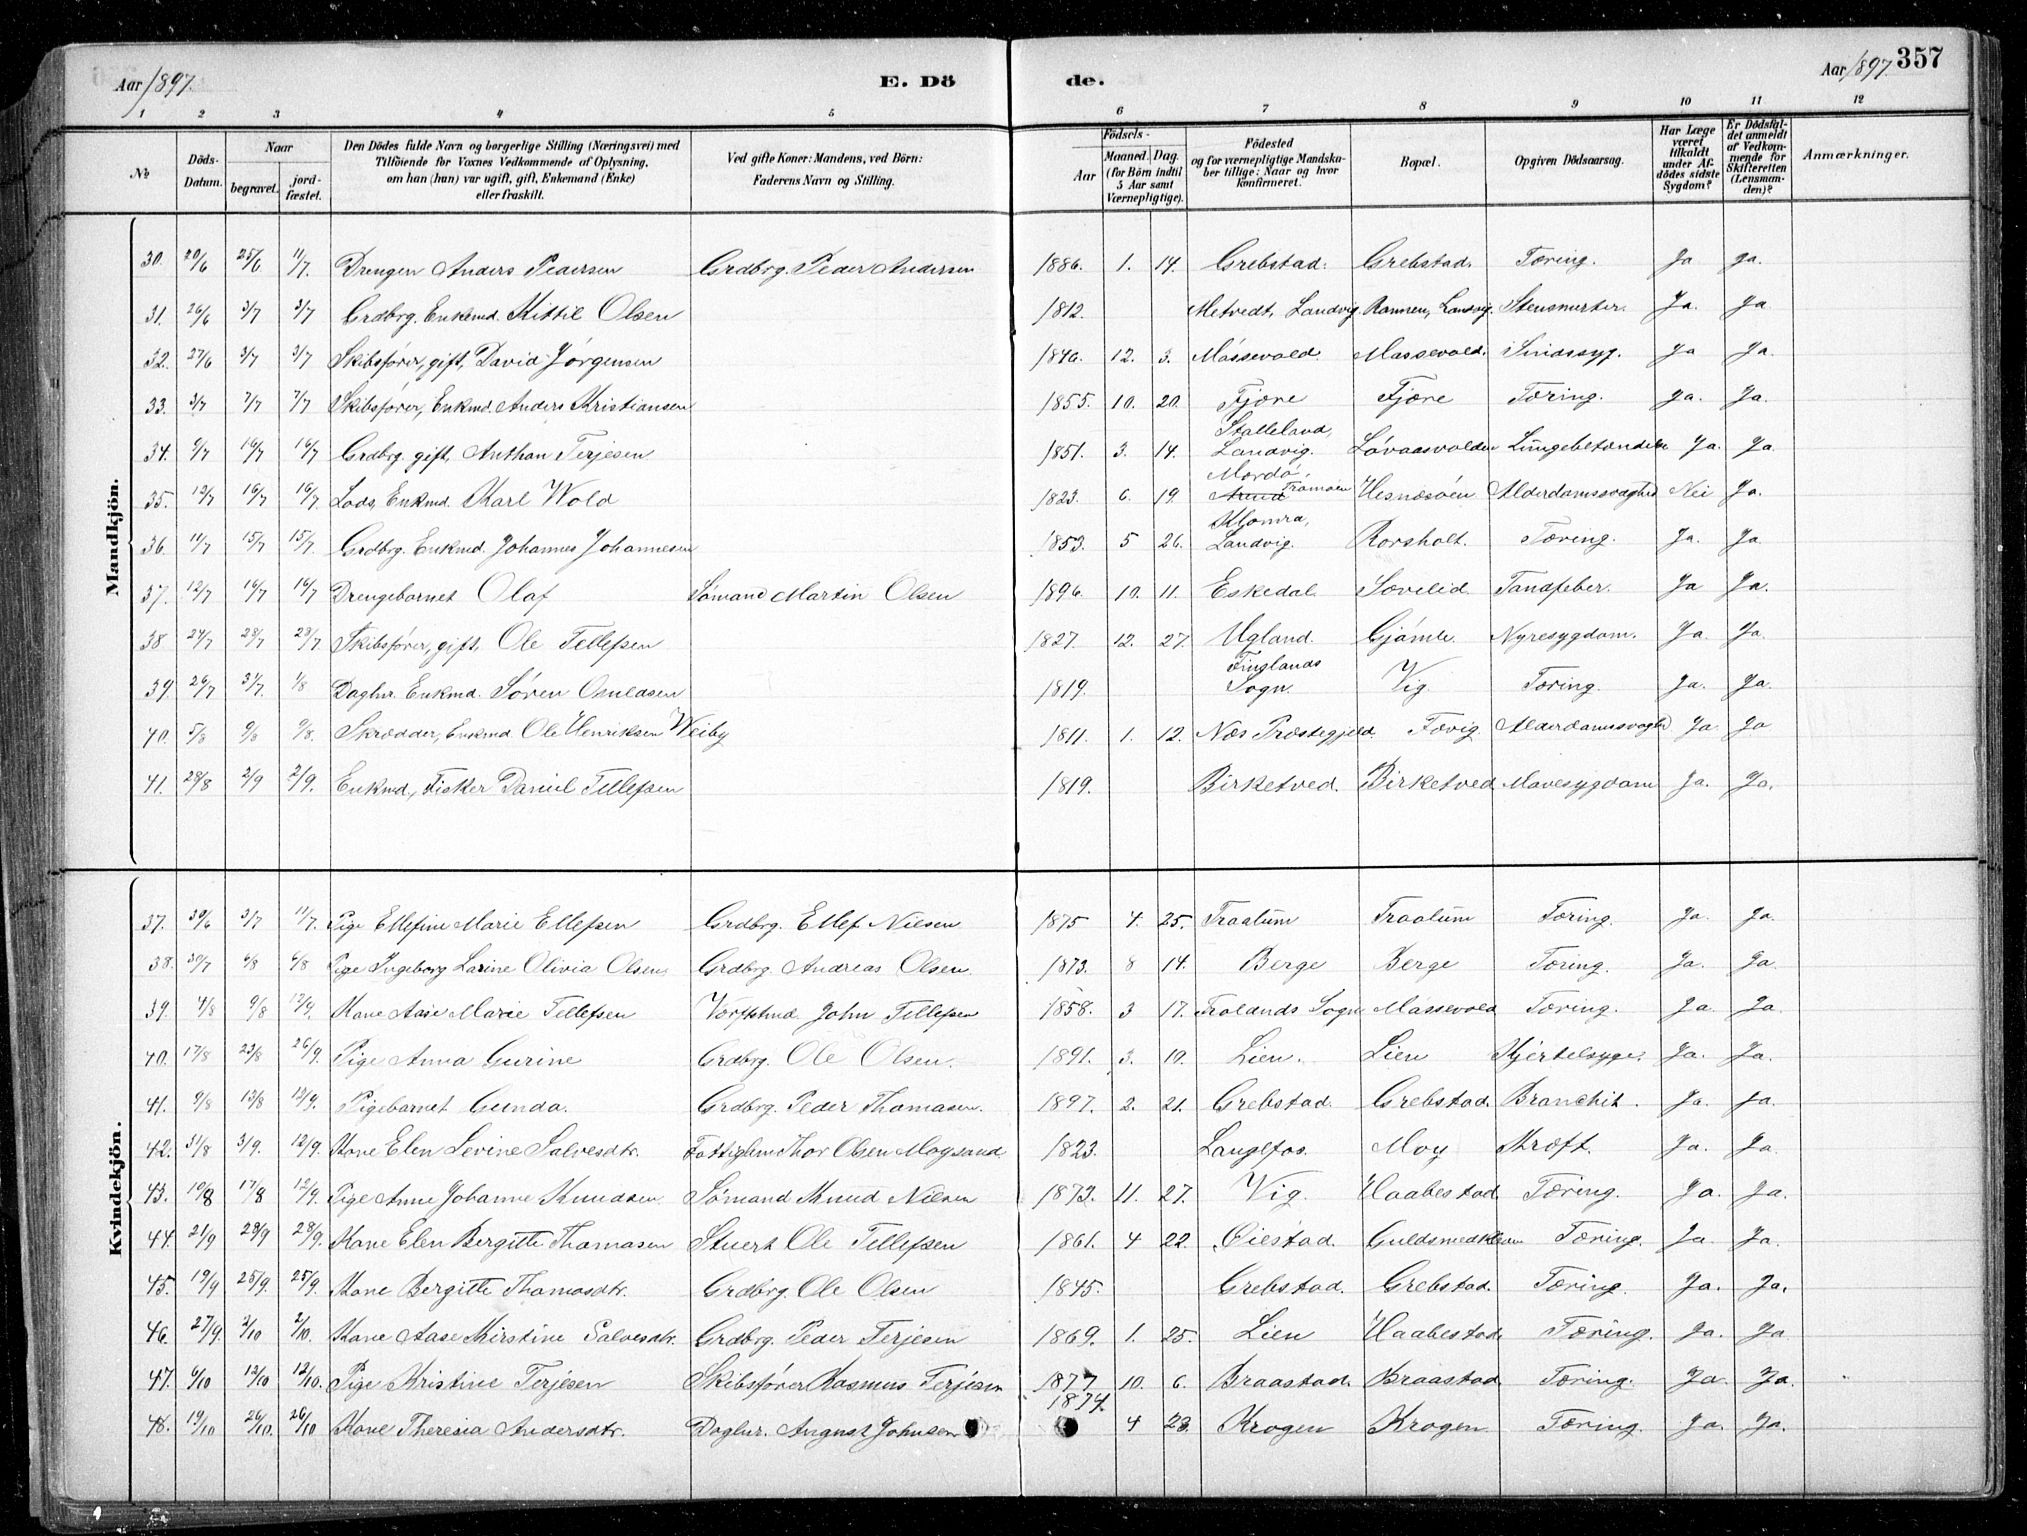 Aar 1897. E. Dö de. Aar 1897. 357
1 2 3 4 5 6 7 8 9 10 11 12
No Döds-Datum. Naar begravet. jordfæstet. Den Dödes fulde Navn og borgerlige Stilling (Næringsvei) med Tilföiende for Voxnes Vedkommende af Oplysning, om han (hun) var ugift, gift, Enkemand (Enke) eller fraskilt. Ved gifte Koner: Mandens, ved Börn: Faderens Navn og Stilling. Födsels- Aar Maaned. Dag. (for Börn indtil 5 Aar samt Værnepligtige). Födested og for værnepligtige Mandskaber tillige: Naar og hvor konfirmeret. Bopæl. Opgiven Dödsaarsag. Har Læge været tilkaldt under Afdödes sidste Sygdom? Er Dödsfaldet anmeldt af Vedkommende for Skifteretten (Lensmanden)? Anmærkninger.
Mandkjön.
30. 20/6 25/6 11/7. Drengen Anders Pedersen Grdbrg. Peder Andersen 1886. 1. 14. Grebstad. Grebstad. Tæring. Ja ja.
31. 26/6 3/7 3/7 Grdbrg. Enkmd. Kittil Olsen 1812. Metvedt, Landvig. Rannen, Landvig. Stensmerter. Ja. Ja
32. 27/6 3/7 3/7 Skibsfører, gift, David Jørgensen 1846. 12. 3. Mássevold. Massevold. Sindssyg. Ja Ja.
33. 3/7 7/7 7/7 Skibsfører, Enkmd. Anders Kristiansen 1855. 10. 20. Fjære Fjære Tæring. Ja. Ja.
34. 9/7 16/7 16/7 Grdbrg. gift, Anthan Terjesen 1851. 3. 14. Stalleland, Landvig. Løvaasvolden Lungebetændelse Ja. Ja
35. 12/7 16/7 16/7 Lods, Enkmd. Karl Wold 1823. 6. 19. Mordø, Tromøen Hesnæsøen Alderdomssvaghed Nei Ja.
36. 11/7 15/7 15/7. Grdbrg. Enkmd. Johannes Johannesen 1853. 5 26. Klomra, Landvig. Rorsholt. Tæring. Ja. Ja
37. 12/7 16/7 16/7 Drengebarnet Olaf Sømand Martin Olsen 1896. 10. 11. Eskedal. Sævelid. Tandfeber. Ja Ja.
38 24/7 28/7 28/7 Skibsfører, gift, Ole Tellefsen 1827. 12. 27. Ugland. Gjømle. Nyresygdom. Ja. Ja.
39. 26/7 31/7. 1/8 Daglnr. Enkmd. Søren Osuldsen 1819. Finglands Sogn. Vig. Tæring. Ja. Ja.
40. 5/8 9/8 9/8. Skrædder, Enkmd Ole Henriksen Weiby 1811. 1. 12. Næs Præstegjeld. Fævig Alderdomssvaghed Ja Ja
41. 28/8 2/9 2/9. Enkmd, Fisker Daniel Tellefsen 1819. Birketved. Birketved Mavesygdom Ja. Ja.
Kvindekjön.
37. 30/6 3/7 11/7. Pige Ellefine Marie Ellefsen Grdbrg. Ellef Nilsen 1875 4. 25. Traalum Traalum Tæring. Ja. Ja
38. 30/7 6/8 6/8 Pige Ingeborg Larine Olivia Olsen Grdbrg. Andreas Olsen. 1873. 8 14. Berge Berge Tæring. Ja. Ja
39. 4/8 9/8 12/9. Kone Aase Marie Tellefsen John Tellefsen 1858. 3 17. Frolands Sogn Mássevold Tæring. Ja. Ja.
40. 17/8 23/8 26/9. Pige Anna Gurine Grdbrg. Ole Olsen. 1891. 3. 10. Lien. Lien Kjertelsyge. Ja. Ja.
41. 9/8 13/8 12/9. Pigebarnet Gunda. Grdbrg. Peder Thomasen. 1897. 2. 21. Grebstad. Grebstad Branchit. Ja. Ja.
42. 31/8 3/9. 12/9. Kone Elen Sevine Salvesdtr. Fattiglem Thor Olsen Moysand. 1823. Langlfos. Moy Kræft. Ja. Ja
43. 10/8 17/8 12/9. Pige Anne Johanne Knudsen Sømand Knud Nilsen 1873. 11. 27. Vig. Haabestad. Tæring. Ja. Ja.
44. 21/9 28/9 28/9. Kone Elen Bergitte Thomasen Stuert Ole Tellefsen 1861. 4 22. Øiestad. Tæring. Ja. Ja.
45. 19/9 25/9. 25/9. Kone Bergitte Thomasdtr. Grdbrg. Ole Olsen 1845. Grebstad. Grebstad. Tæring. Ja. Ja.
46. 27/9 2/10 2/10. Kone Aase Kirstine Salvesdtr. Grdbrg. Peder Terjesen 1869. 1. 25. Lien Haabestad. Tæring. Ja. Ja
47. 6/10 12/10 12/10. Pige Kristine Terjesen Skibsfører Rasmus Terjesen 1877 10. 6. Braastad. Braastad. Tæring. Ja Ja.
48. 19/10 26/10. 26/10 Kone Theresia Andersdtr. Daglnr. August Johnsen 1874. 4 23. Krogen Krogen Tæring. Ja. Ja.